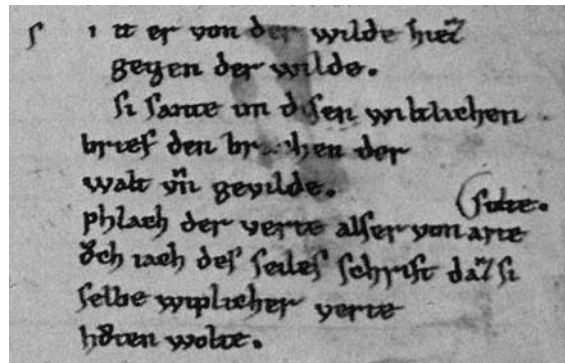 ſ ı tt er von der wilde hiez
gegen der wilde.
ſi ſante im diſen wiltlichen
brief den br chen der
walt vn̄ gevilde.
ſolte.
phlach der verte alſer von arte
oͮch iach deſ ſeileſ ſchrift daz ſi
ſelbe wiplicher verte
huͦten wolte.